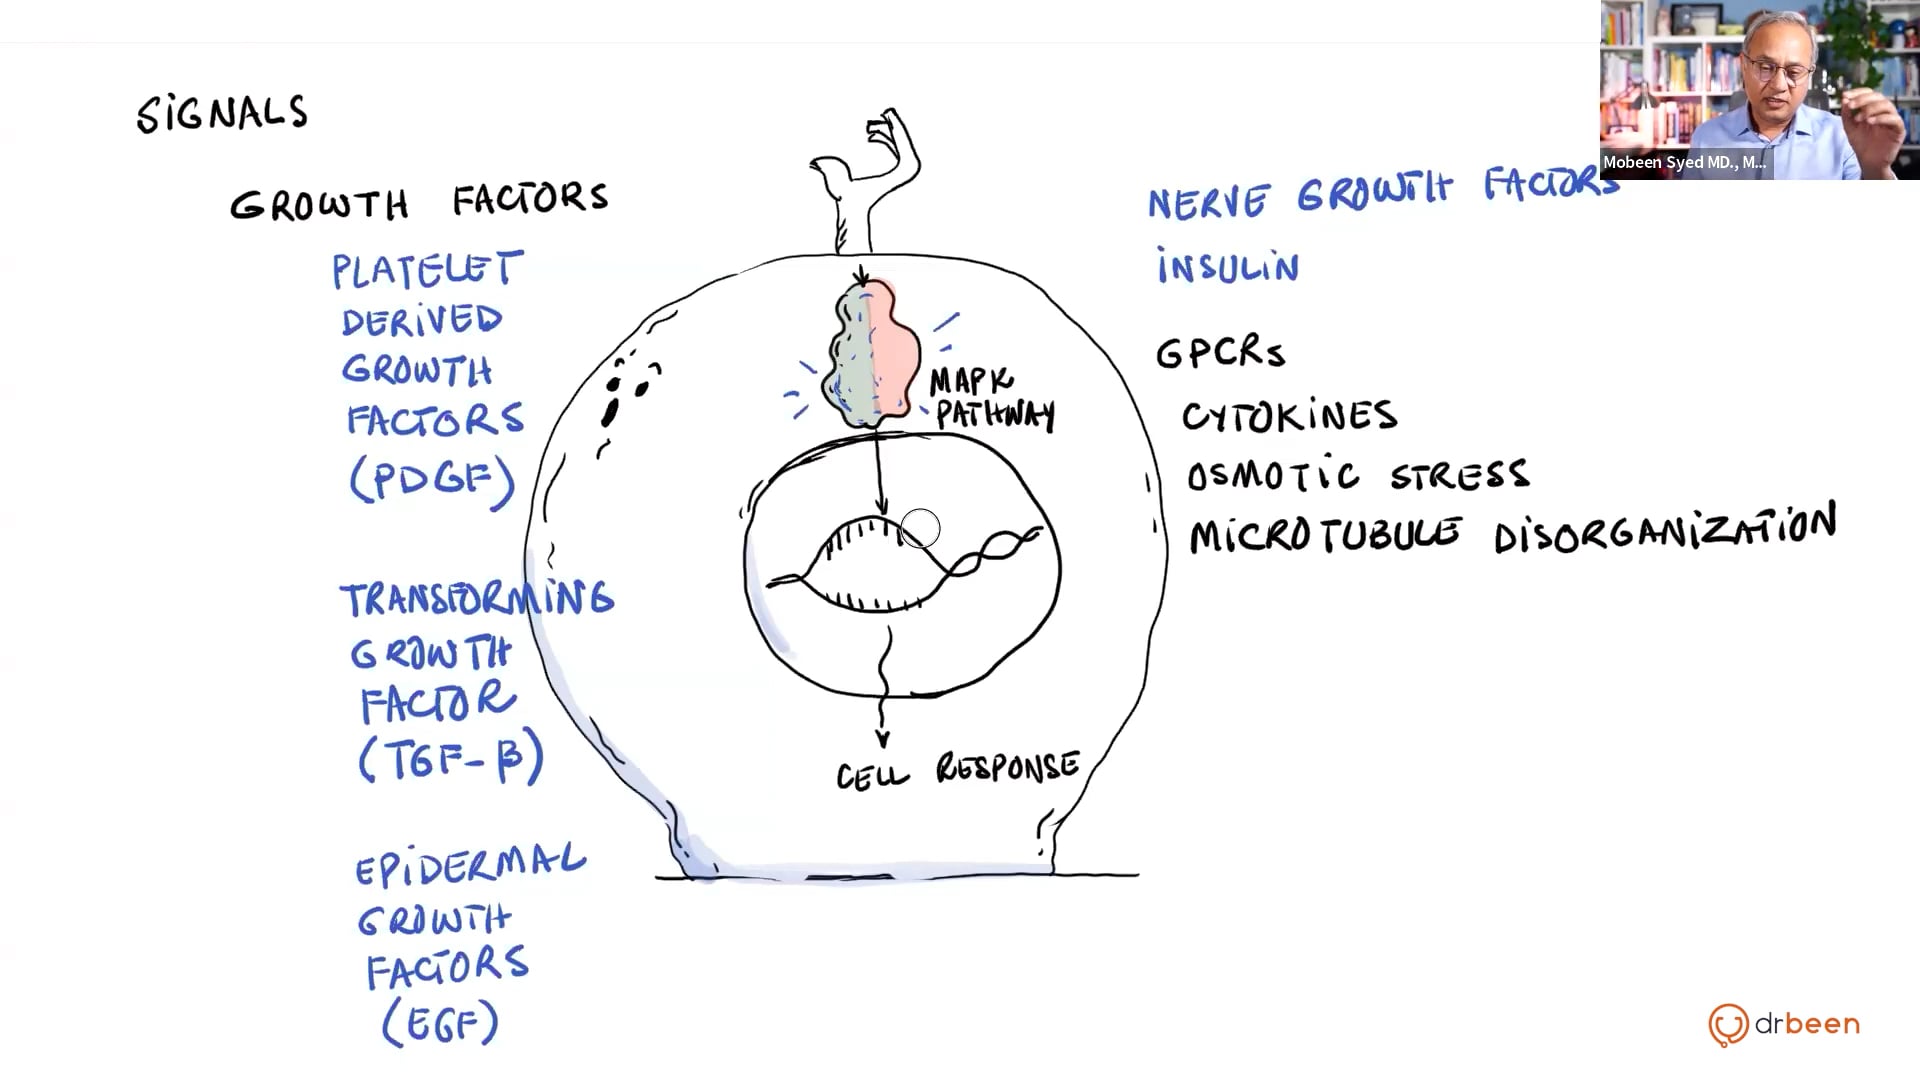 SIGNALS
GROWTH FACTORS
PLATELET
DERIVED
GROWTH
FACTORS
(PDGF)
TRANSFORMING
GROWTH
FACTOR
(TGF-β)
EPIDERMAL
GROWTH
FACTORS
(EGF)
MAPK
PATHWAY
CELL RESPONSE
NERVE GROWTH FACTORS
INSULIN
GPCRs
CYTOKINES
OSMOTIC STRESS
MICROTUBULE DISORGANIZATION
Mobeen Syed MD., M...
drbeen